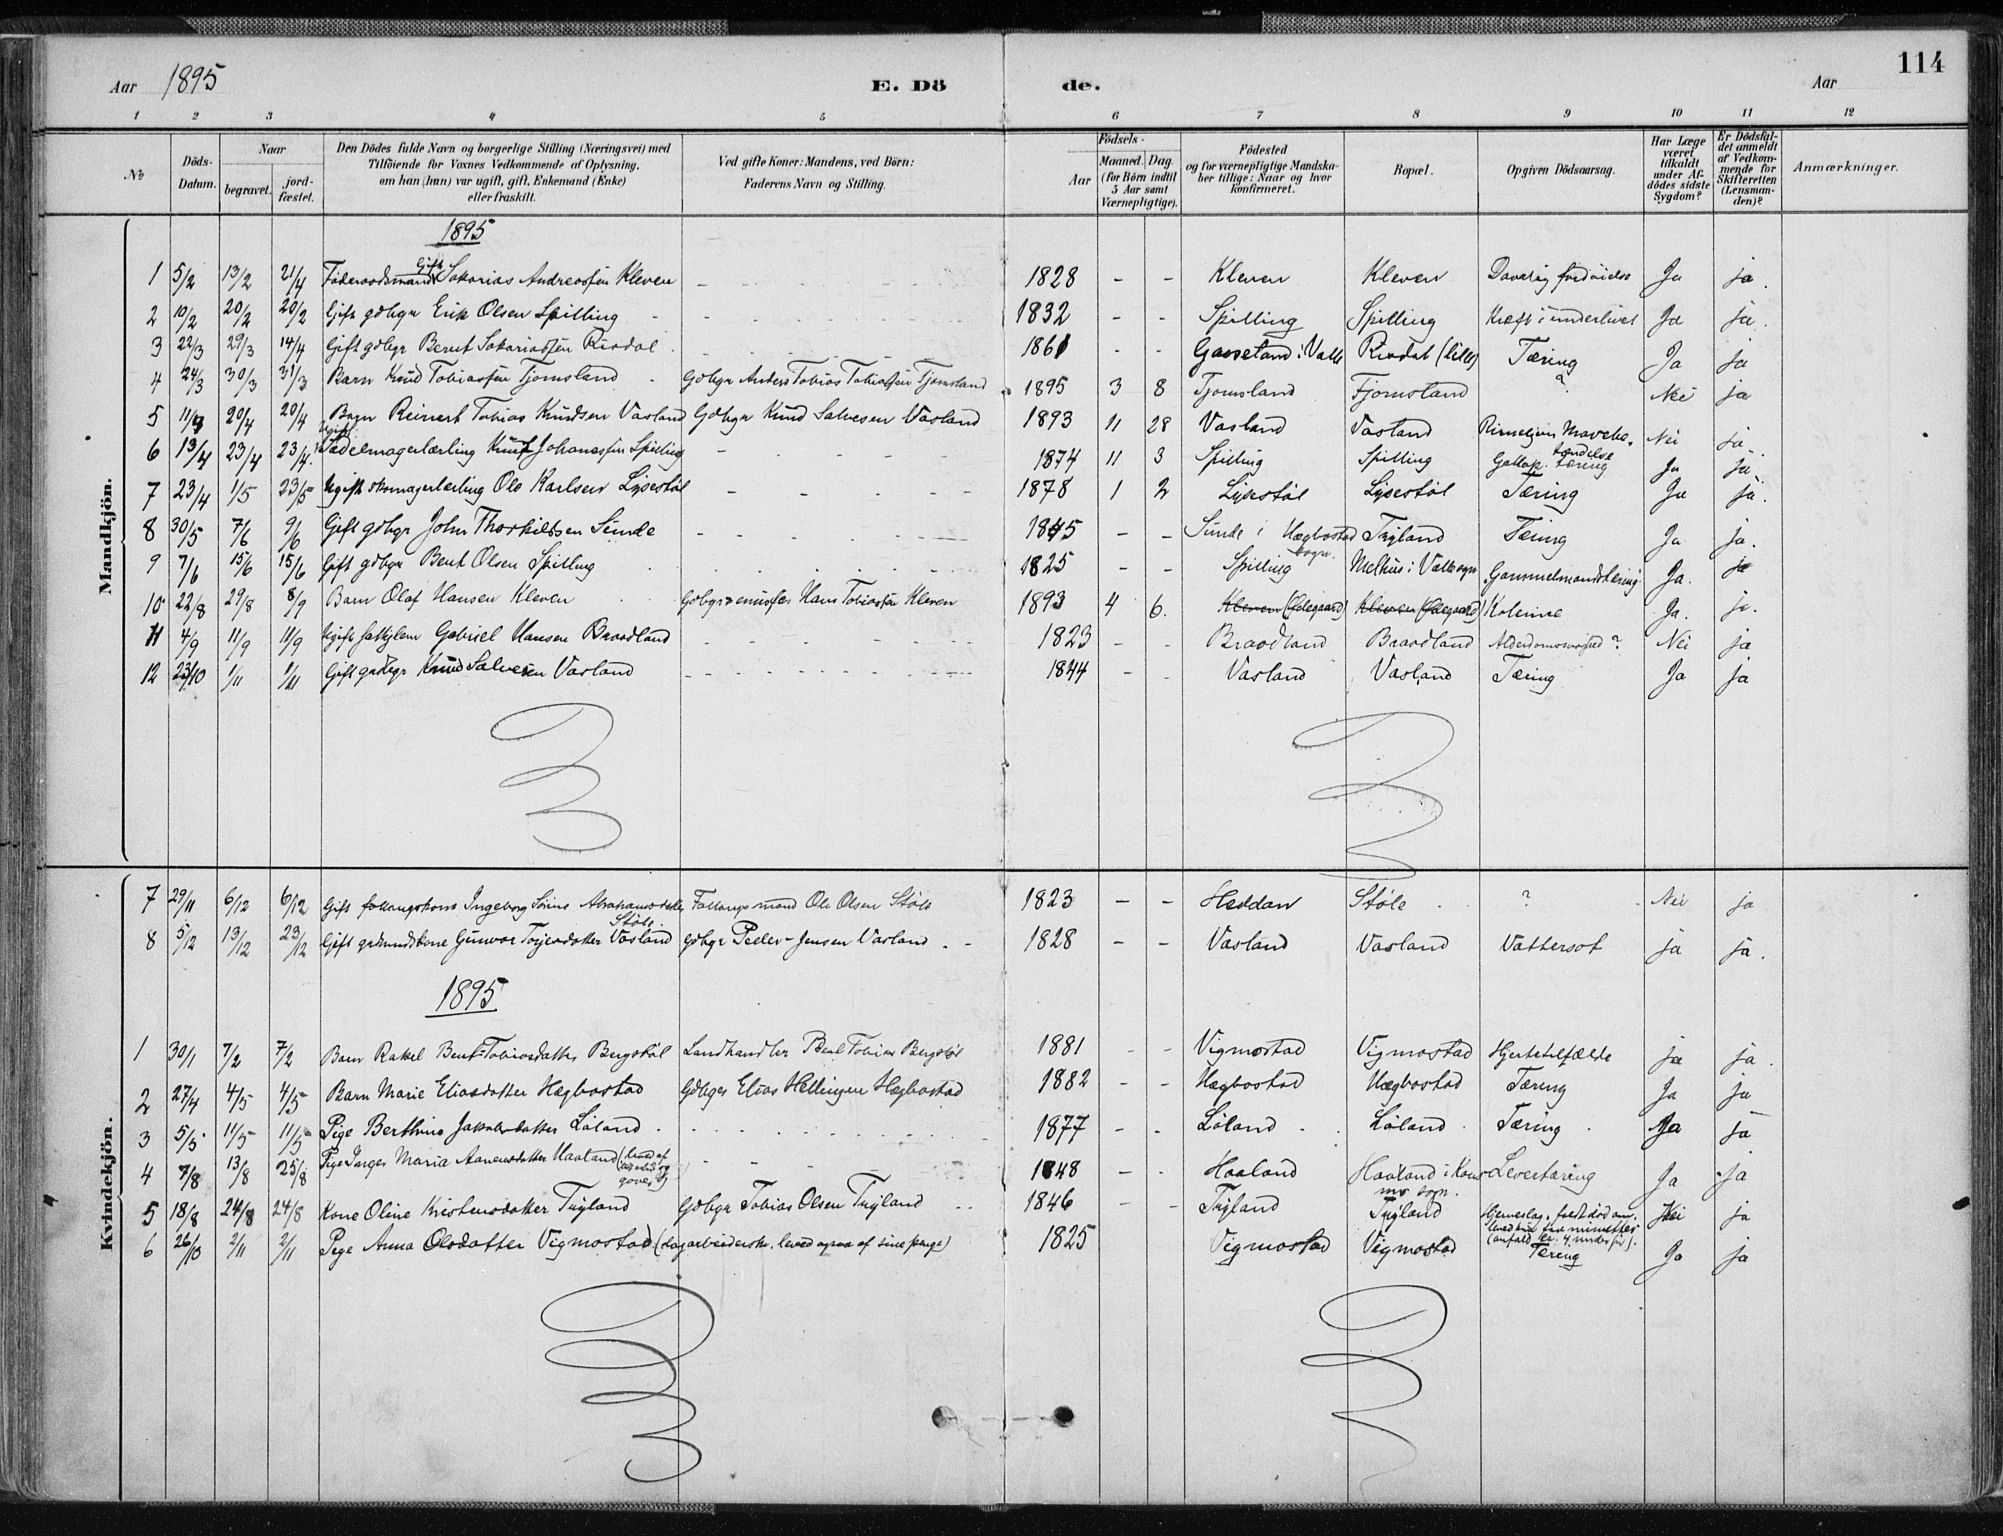 114
Aar 1895 E. Dö de. Aar
1 2 3 4 5 6 7 8 9 10 11 12
No
Döds-Datum.
Naar
begravet.
jord-fæstet.
Den Dödes fulde Navn og borgerlige Stilling (Næringsvei) med
Tilföiende for Voxnes Vedkommende af Oplysning,
om han (hun) var ugift, gift, Enkemand (Enke)
eller fraskilt.
Ved gifte Koner: Mandens, ved Börn:
Faderens Navn og Stilling.
Födsels-
Aar
Maaned. Dag.
(for Börn indtil
5 Aar samt
Værnepligtige).
Födested
og for værnepligtige Mandska-
ber tillige: Naar og hvor
konfirmeret.
Bopæl.
Opgiven Dödsaarsag.
Har Læge
været
tilkaldt
under Af-
dödes sidste
Sygdom?
Er Dödsfal-
det anmeldt
af Vedkom-
mende for
Skifteretten
(Lensman-
den)?
Anmærkninger.
Mandkjön.
1895
1 5/2 13/2 21/4 Föderaadsmand Gift Sakarias Andreassen Kleven 1828 - - Kleven Kleven Ja ja.
2 10/2 20/2 20/2 Gift gdbgr Erik Olsen Spilling 1832 - - Spilling Spilling Kræft i underlivet Ja ja.
3 22/3 29/3 14/4 Gift gdbgr Bernt Sakariassen Rivdal 1861 - - i Valle Tæring Ja ja
4 24/3 30/3 31/3 Barn Knud Tobiassen Tjomsland Gdbgr Anders Tobias Tobiassen Tjomsland 1895 3 8 Tjomsland Tjomsland ? Nei ja
5 20/4 20/4 Barn Reinert Tobias Knudsen Vasland Gdbgr Knud Salvesen Vasland 1893 11 28 Vasland Vasland Nei ja.
6 13/4 23/4 23/4 Ugift Sadelmagerlærling Knut Johanessen Spilling 1874 11 3 Spilling Spilling Gallop. tæring Ja ja
7 23/4 1/5 23/5 Ugift skomagerlærling Ole Karlsen Lysestøl 1878 1 2 Lysestøl Lysestøl Tæring Ja ja.
8 30/5 7/6 9/6 Gift gdbgr John Thorkildsen Sunde 1845 - - Sunde i Hægbostad sogn. Tryland Tæring Ja ja.
9 7/6 15/6 15/6 Gift gdbgr Bent Olsen Spilling 1825 - - Spilling Melhus i Valle sogn Gammelmandstæring Ja. ja
10 22/8 29/8 8/9 Barn Olaf Hansen Kleven Hans Tobiassen Kleven 1893 4 6. Kleven (Ødegaard) Kleven (Ødegaard) Kolerine Ja. ja.
11 4/9 11/9 11/9 Ugift Gabriel Hansen Braadland 1823 - - Braadland Braadland ? Nei ja
12 23/10 1/11 1/11 Gift gdbgr Knud Salvesen Vasland 1844 - - Vasland Vasland Tæring Ja ja
Kvindekjön.
7 29/11 6/12 6/12 Gift Ingeborg Abrahamsdatter Støle Ole Olsen Støle 1823 - - Heddan Støle ? Nei ja
8 5/12 13/12 23/12 Gift Gunvor Torjersdatter Vasland Gdbgr Peder Jensen Vasland 1828 - - Vasland Vasland Vattersot ja ja.
1895
1 30/1 7/2 7/2 Barn Rakel Bent-Tobiasdatter Bergstøl Landhandler Bent Tobias Bergstøl 1881 - - Vigmostad Vigmostad Hjertetilfælde ja ja.
2 27/4 4/5 4/5 Barn Marie Eliasdatter Hægbostad Gdbger Elias Hellingsen Hægbostad 1882 - - Hægbostad Hægbostad Tæring Ja ja
3 5/5 11/5 11/5 Pige Berthine Jakobsdatter Løland 1877 - - Løland Løland Tæring Ja ja
4 7/8 13/8 25/8 Pige Inger Maria Aanensdatter Haaland (leved af 1848 - - Haaland Haaland i sogn. Levertæring Ja ja
5 18/8 24/8 24/8 Kone Oline Kristensdatter Tryland Gdbgr Tobias Olsen Tryland 1846 - - Tryland Tryland Hjerneslag. Nei ja
6 26/10 2/11 2/11 Pige Anna Olsdatter Vigmostad (dagarbeiderske, leved af sine penge) 1825 Vigmostad Vigmostad Tæring Ja ja